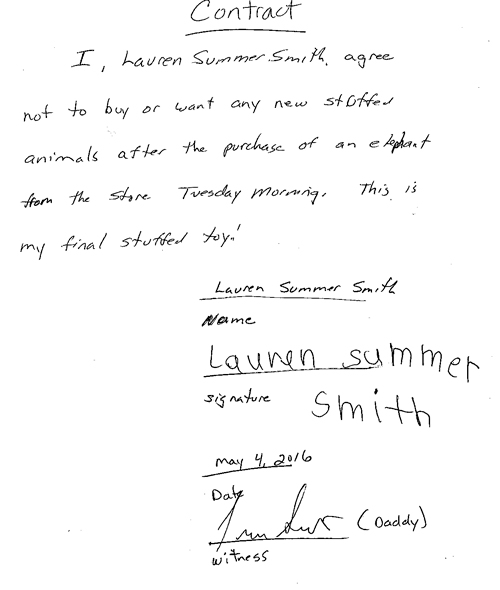 Contract
I, Lauren Summer Smith, agree
not to buy or want any new stuffed
animals after the purchase of an elephant
from the store Tuesday Morning. This is
my final stuffed toy!
Lauren Summer Smith
Name
Lauren summer
signature
Smith
may 4, 2016
Date
(Daddy)
witness